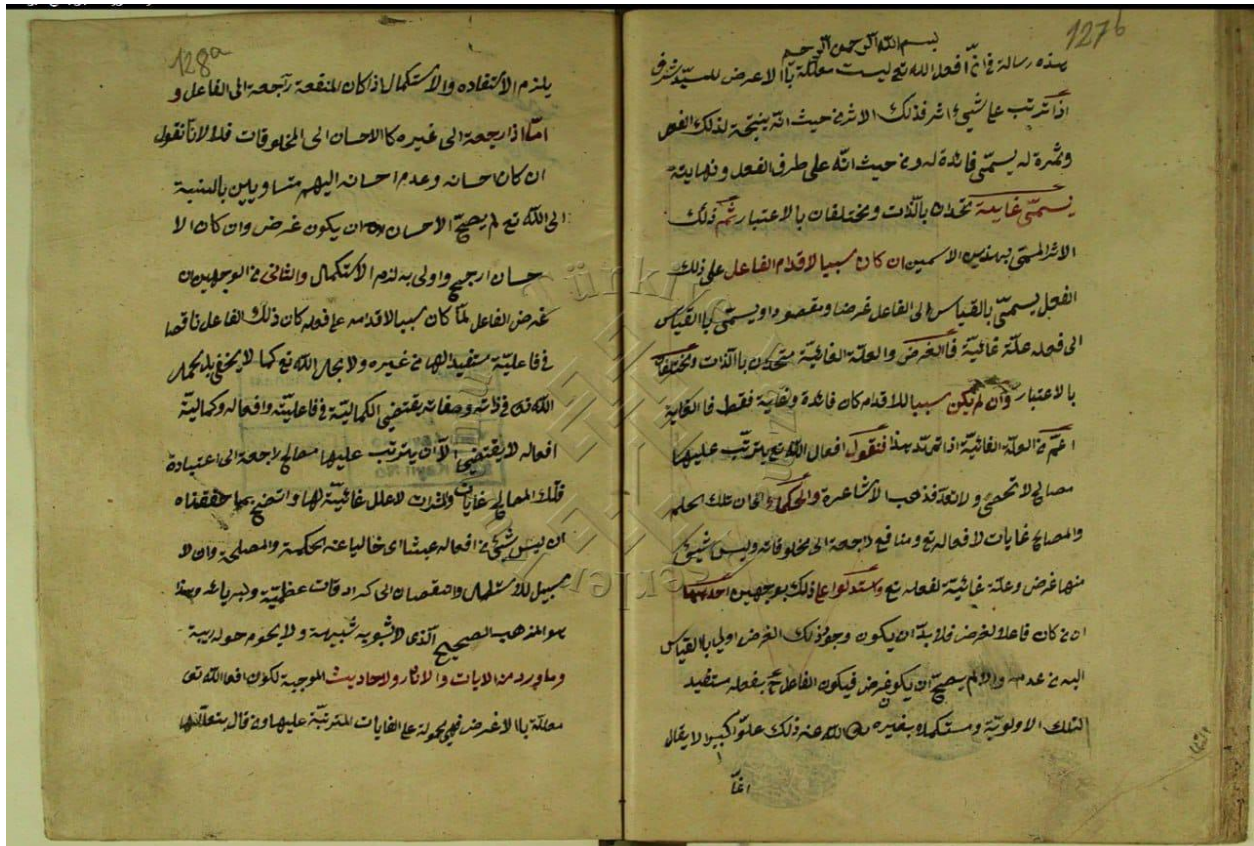 127b
بسم الله الرحمن الرحيم
هذه رسالة في انّ افعل الله تع ليست معللة باالاعرض للسيد شرف
اذا ترتب على شيئ اثر فذلك الاثر من حيث انّه ينتجة لذلك الفعل
وثمرة له يسمّى فائدة له ومن حيث انّه على طرف الفعل ونهايته
يسمّى غاية له متحدان باالذات ومختلفان بالاعتبار ثم ذلك
الاثر المسمّى بهذين الاسمين ان كان سببا لاقدام الفاعل على ذلك
الفعل يسمّى بالقياس الى الفاعل غرضا ومقصودا ويسمّى باالقياس
الى فعله علّة غائية فاالغرض والعلّة الغائيّة متحدان باالذات ومختلفان
بالاعتبار وان لم يكن سببا للاقدام كان فائدة وغاية فقط فاالغاية
اعمّ من العلّة الغائيّة اذا تمهد هذا فنقول افعال الله تع يترتّب عليها
مصالح لا تحصى ولا تعدّ فذهب الاشاعرة والحكماء الى ان تلك الحكم
والمصالح غايات لافعاله تع ومنافع راجعة الى مخلوقاته وليس شيئ
منها غرض وعلّة غائيّة لفعله تع واستدلوا على ذلك بوجهين احدهما
ان من كان فاعلا لغرض فلا بدّ ان يكون وجود ذلك الغرض اولى باالقياس
اليه من عدمه والا لم يصحّ ان يكون غرض فيكون الفاعل ح بفعله مستفيد
لتلك الاولويّة ومستكملا بغيره الله عن ذلك علوّا كبيرا لا يقال
انما
128a
يلزم الاستفاده والاستكمال اذا كان المنفعة راجعة الى الفاعل و
امّا اذا رجعة الى غيره كاالاحسان الى المخلوقات فلا لانا نقول
ان كان احسانه وعدم احسانه اليهم متساويين بالنسبة
الى الله تع لم يصحّ الاحسان ان يكون غرض وان كان الا
حسان ارجح واولى به لزم الاستكمال والثانى من الوجهين ان
غرض الفاعل لمّا كان سببا لاقدامه على فعله كان ذلك الفاعل ناقصا
في فاعليّته مستفيدا لها من غيره ولا مجال الله تع كما لا يخفى بل كمال
الله تع في ذاته وصفاته يقتضى الكماليّة في فاعليّته وافعاله وكماليّة
افعاله لا يقتضى الا ان يترتّب عليها مصالح راجعة الى اعتباده
فتلك المصالح غايات لا علل غائيّة لها واتضح بما حققناه
ان ليس شيئ من افعاله عبثا اى خاليا عن الحكمة والمصلحة وان لا
سبيل للاستكمال والنقصان الى عظمته وكبريائه وهذا
هو المذهب الصحيح الّذى لا يشوبه شبهة ولا يحوم حوله ريبة
وما ورد من الايات والاثار والاحاديث الموجبة لكون افعال الله تعى
معللة باالاغرض فهى محمولة على الغايات المترتبّة عليها ومن قال بتعلّلها